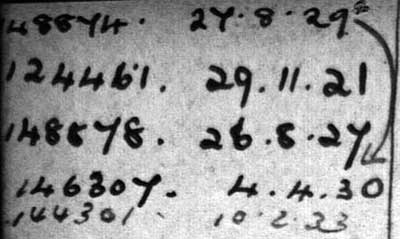 148874. 27.8.29
124461. 29.11.21
148878. 26.8.27
146307. 4.4.30
144301. 10.2.33